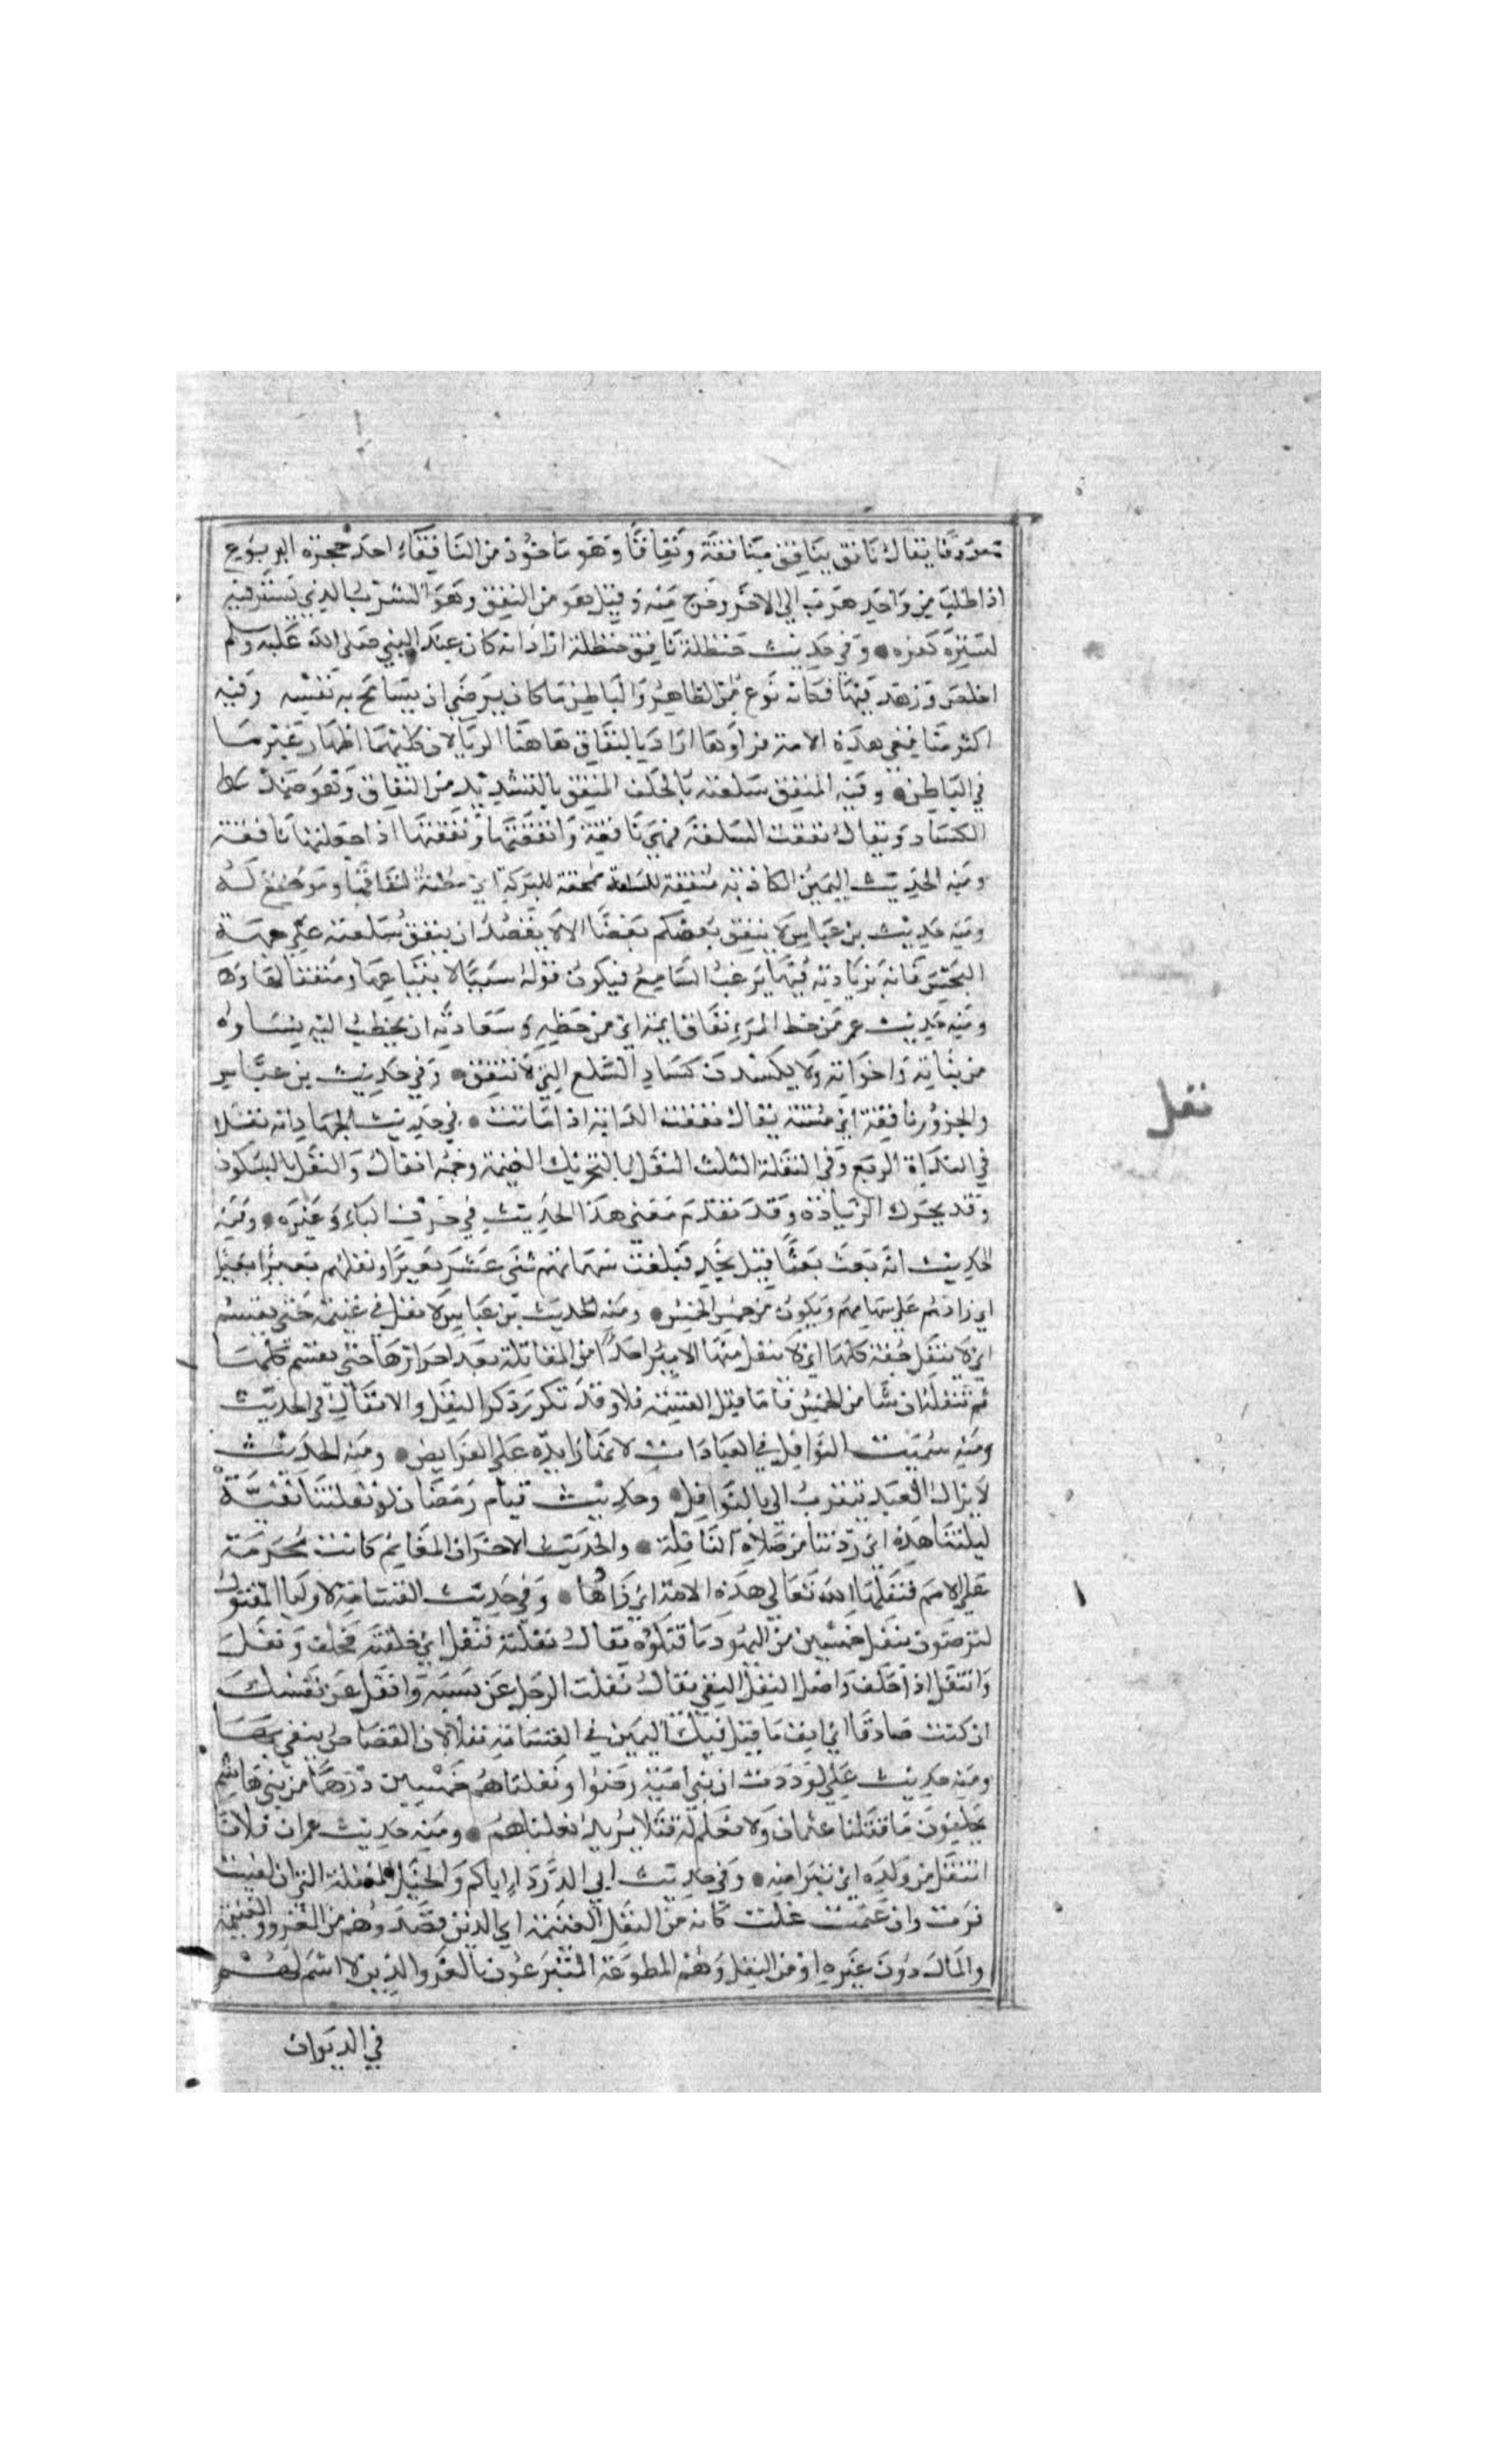 معروفا يقال نافق ينافق منافقة ونفاقا وهو ماخوذ من النافقاء احد جحرة اليربوع
اذا طلب من واحد هرب الي الاخر وخرج منه وقيل هو من النفق وهو السرب الذي يستتر فيه
لستره كفره وفي حديث حنظلة نافق حنظلة اراد انه كان عند النبي صلى الله عليه وسلم
اخلص وزهد فيها فكانه نوع من الظاهر والباطن ما كان يرضي ان يسامح به نفسه وفيه
اكثر منافقي هذه الامة قراوها اراد بالنفاق هاهنا الريا لان كليهما اظهار غير ما
في الباطن وفيه المنفق سلعته بالحلف المنفق بالتشديد من النفاق وهو ضد
الكساد ويقال نفقت السلعة فهي نافقة وانفقتها ونفقتها اذا جعلتها نافقة
ومنه الحديث اليمين الكاذبة منفقة للسلعة ممحقة للبركة اي مظنة لنفاقها وموضع له
ومنه حديث بن عباس لا ينفق بعضكم بعضا الا لا يقصد ان ينفق سلعته علي جهة
النجش فانه بزيادته فيها يرغب السامع فيكون قوله سببا لابتياعها ومنفقا لها
ومنه حديث عمر من حظ المرء نفاق ايمه اي من حظه وسعادته ان يخطب اليه نساوه
من بناته واخواته ولا يكسدن كساد السلع التي لا تنفق وفي حديث بن عباس
والجزور نافقة اي ميتة يقال نفقت الدابة اذا ماتت في حديث الجهاد انه نفل
في البداة الربع وفي القفلة الثلث النفل بالتحريك الغنيمة وجمعه انفال والنفل بالسكون
وقد يحرك الزيادة وقد تقدم معني هذا الحديث في حرف الباء وغيره ومنه
الحديث انه بعث بعثا قبل نجد فبلغت سهمانهم ثني عشر بعيرا ونفلهم بعيرا بعيرا
اي زادهم علي سهامهم ويكون من خمس الخمس ومنه الحديث بن عباس لا نفل في غنيمة حتي يقسم
جفة كلها اي لا ينفل منها الامير احدا من المقاتلة بعد احرازها حتي يقسم كلها
ثم ينفله ان شا من الخمس فاما قبل القسمة فلا وقد تكرر ذكر النفل والانفال في الحديث
ومنه سميت النوافل في العبادات لانها زايدة علي الفرايض ومنه الحديث
لا يزال العبد يتقرب الي بالنوافل وحديث قيام رمضان لو نفلتنا بقية
ليلتنا هذه اي زدتنا من صلاة النافلة والحديث الاخر ان المغانم كانت محرمة
علي الامم فنفلها الله تعالي هذه الامة اي زادها وفي حديث القسامة لاوليا المقتول
لترضون بنفل خمسين من اليهود ما قتلوه يقال نفلته فنفل اي حلفته فحلف ونفل
وانتفل اذا حلف واصل النفل النفي يقال نفلت الرجل عن نسبه وانفل عن نفسك
ان كنت صادقا اي انف ما قيل فيك اليمين في القسامة نفلا لان القصاص ينفي بها
ومنه حديث علي لوددت ان بني امية رضوا ونفلناهم خمسين رجلا من بني هاشم
يحلفون ما قتلنا عثمان ولا نعلم له قتلا يريد نفلناهم ومنه حديث عمران فلانا
انتفل من ولده اي تبرا منه وفي حديث ابي الدردا اياكم والخيل المنفلة التي ان لقيت
فرت وان غنمت غلت كانه من النفل الغنيمة اي الذين قصدوهم من الغزو والغنيمة
والمال دون غيره او من النفل وهم المطوعة المتبرعون بالغزو الذين لا اسم لهم
في الديوان
نفل